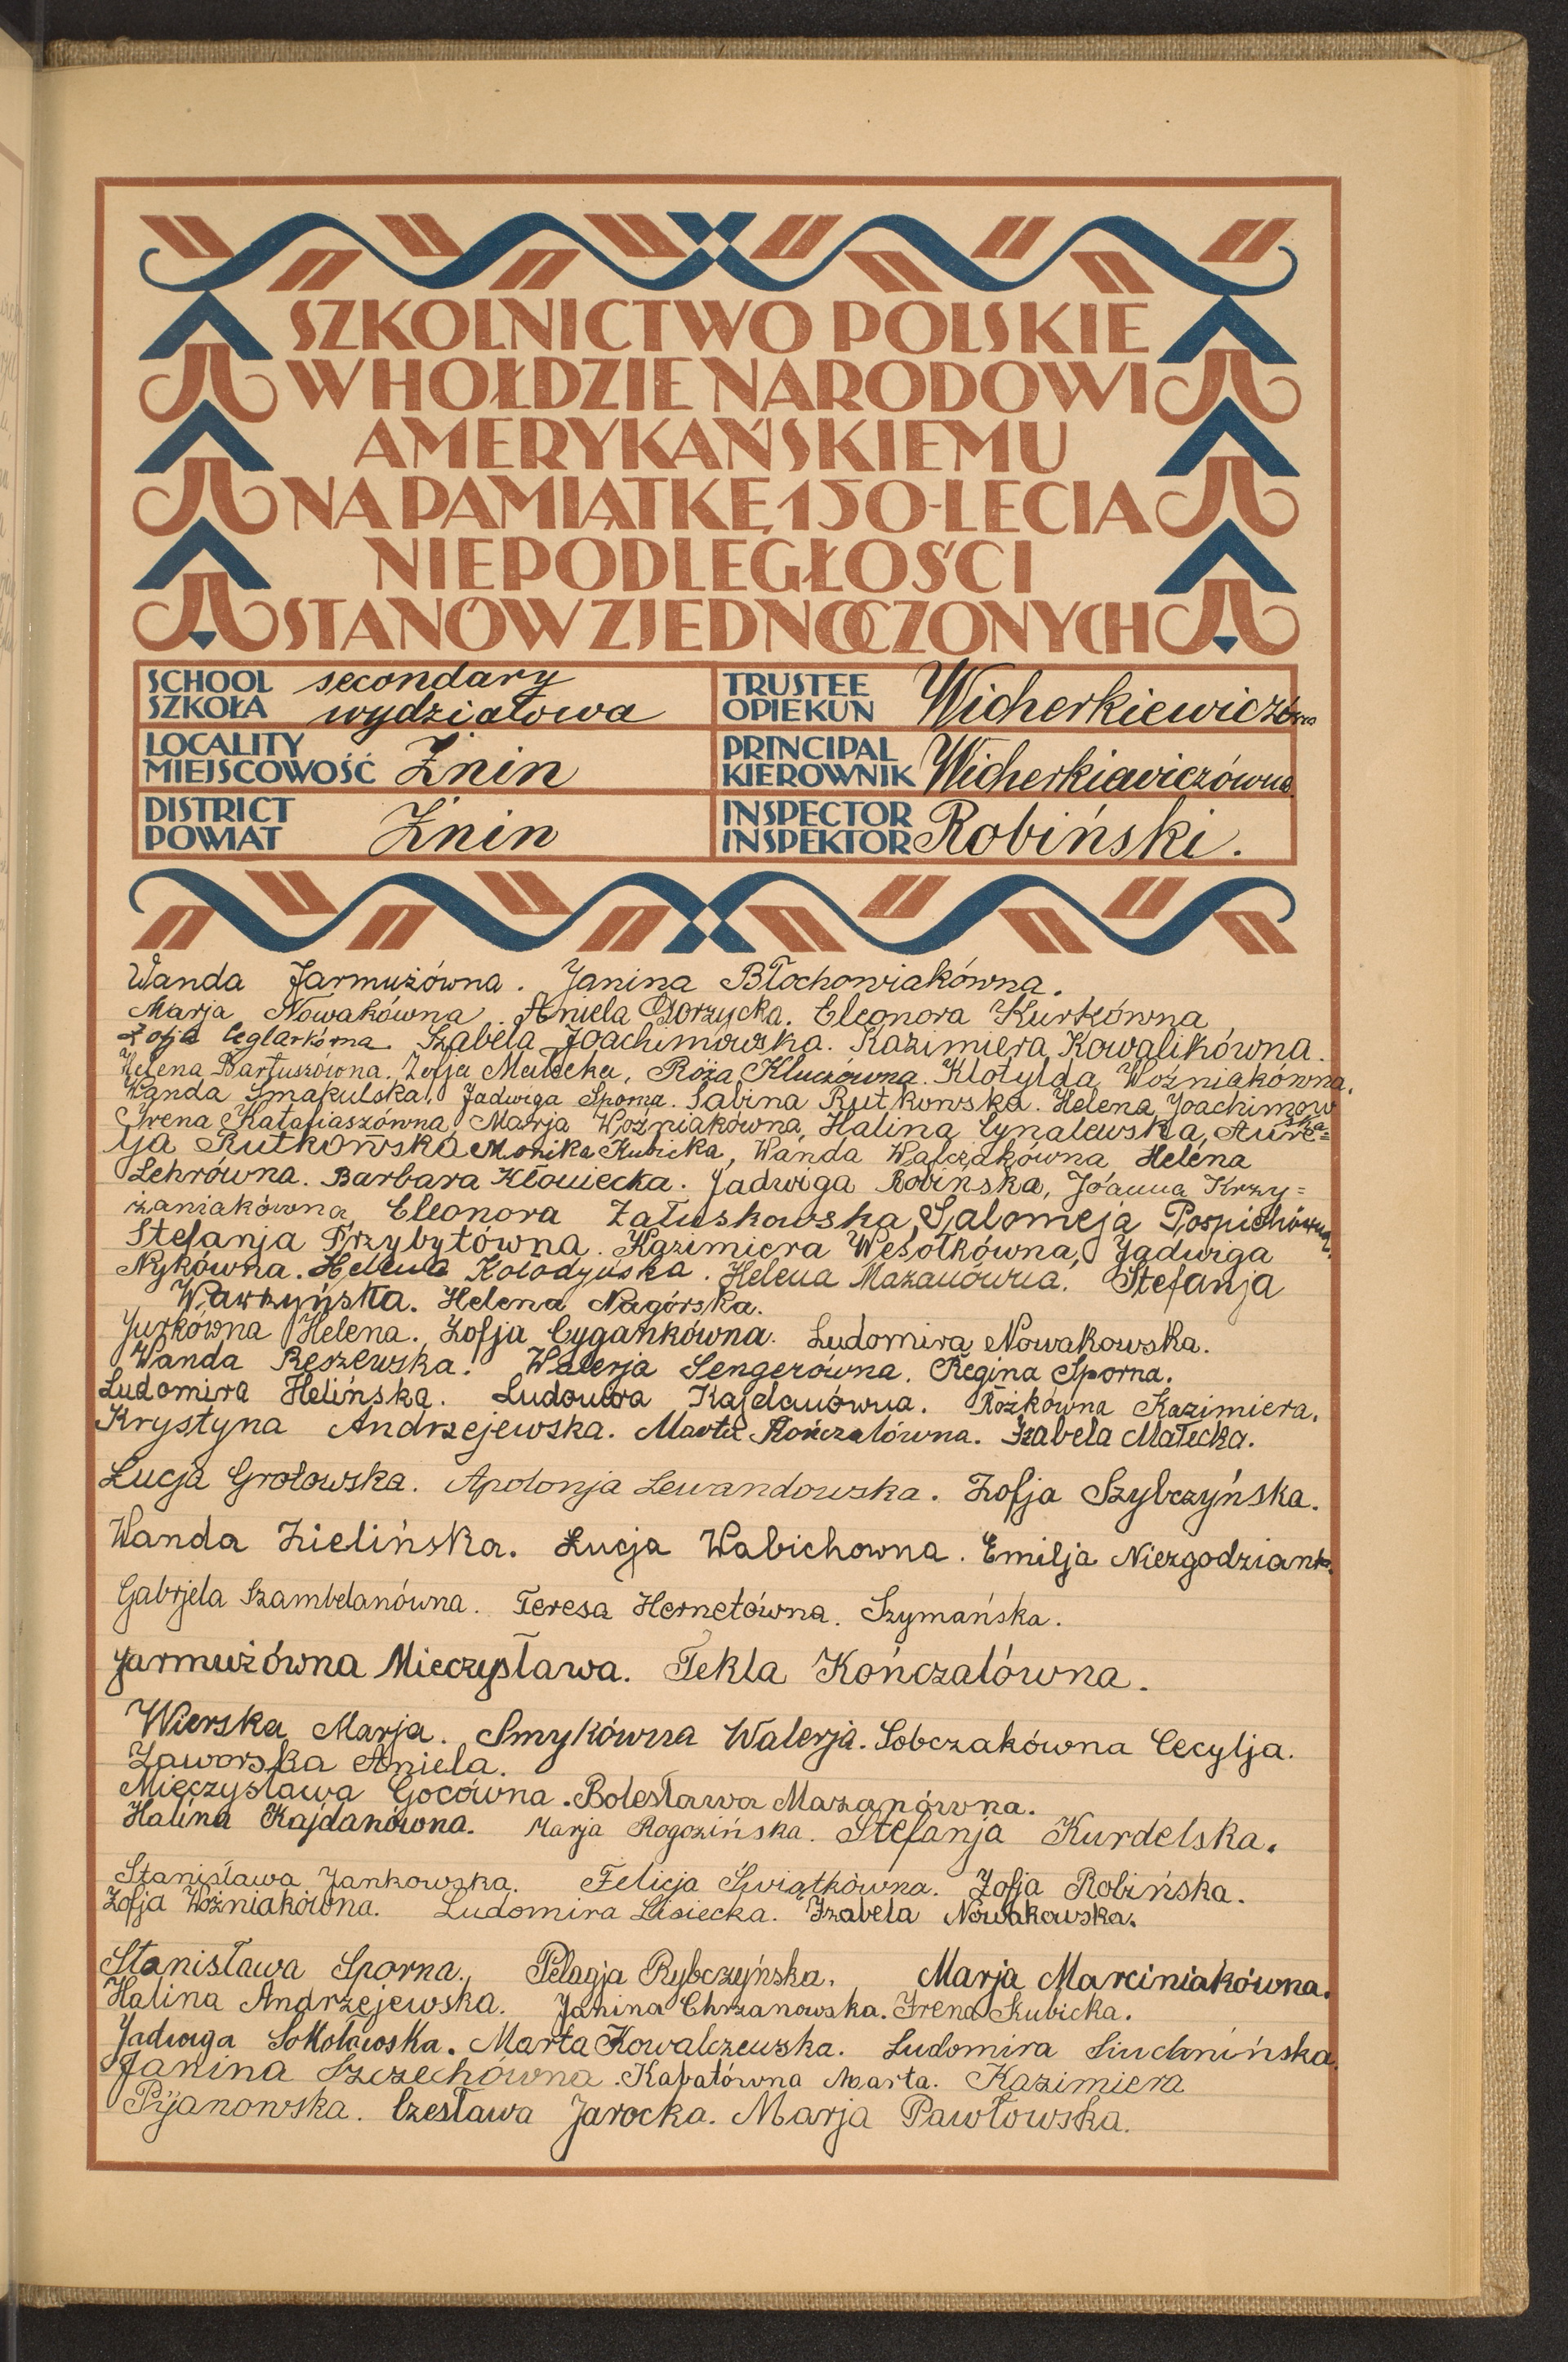 SZKOLNICTWO POLSKIE
W HOŁDZIE NARODOWI
AMERYKAŃSKIEMU
NA PAMIĄTKĘ 150-LECIA
NIEPODLEGŁOŚCI
STANÓW ZJEDNOCZONYCH
SCHOOL SZKOŁA secondary wydziałowa
TRUSTEE OPIEKUN
LOCALITY MIEJSCOWOŚĆ Żnin
PRINCIPAL KIEROWNIK Wicherkiewiczówna
DISTRICT POWIAT Żnin
INSPECTOR INSPEKTOR Robiński.
Wanda Jarmużówna. Janina Błochowiakówna.
Marja Nowakówna. Aniela Gorzycka. Eleonora Kurkówna
Zofja Ceglarkówna. Izabela Joachimowska. Kazimiera Kowalikówna.
Helena Bartuszówna. Zofja Małecka, Róża Kluczówna. Klotylda Woźniakówna.
Wanda Smakulska, Jadwiga Sporna. Sabina Rutkowska. Helena Joachimowska
Irena Katafiaszówna, Marja Woźniakówna, Halina Cynalewska, Aure=
lja Rutkowska Monika Kubicka, Wanda Walczakówna Helena
Lehrówna. Barbara Kłowiecka. Jadwiga Robińska, Joanna Krzy=
żaniakówna, Eleonora Załuskowska, Salomeja Pospichówna.
Stefanja Przybytówna. Kazimiera Wesołkówna, Jadwiga
Nykówna. Helena Kołodyńska. Helena Mazanówna. Stefanja
Warzyńska. Helena Nagórska.
Jurkówna Helena. Zofja Cygankówna. Ludomira Nowakowska.
Wanda Reszewska. Walerja Sengerówna. Regina Sporna.
Ludomira Helińska. Ludowra Kajdanówna. Rożkówna Kazimiera.
Krystyna Andrzejewska. Marta Kończalówna. Izabela Małecka.
Łucja Grotowska. Apolonja Lewandowska. Zofja Szybczyńska.
Wanda Zielińska. Łucja Wabichowna. Emilja Niezgodzianka.
Gabrjela Szambelanówna. Teresa Hernetówna. Szymańska.
Jarmużówna Mieczysława. Tekla Kończalówna.
Wierska Marja. Smykówna Walerja. Sobczakówna Cecylja.
Zaworska Aniela.
Mieczysława Gocówna. Bolesława Mazanówna.
Halina Kajdanówna. Marja Rogozińska. Stefanja Kurdelska.
Stanisława Jankowska. Felicja Świątkówna. Zofja Robińska.
Zofja Woźniakówna. Ludomira Lisiecka. Izabela Nowakowska.
Stanisława Sporna. Pelagja Rybczyńska. Marja Marciniakówna.
Halina Andrzejewska. Janina Chrzanowska. Irena Kubicka.
Jadwiga Sokołowska. Marta Kowalczewska. Ludomira Siuchnińska.
Janina Szczechówna. Kabatówna Marta. Kazimiera
Pijanowska. Czesława Jarocka. Marja Pawłowska.